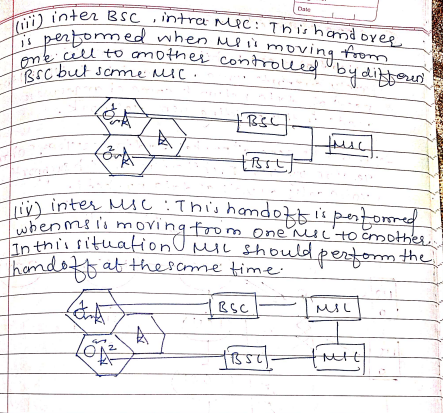 Date
(iii) inter BSC, intra MSC: This handover
is performed when MS is moving from
one cell to another controlled by different
BSC but same MSC.
1
BSC
MSC
2
BSC
(iv) inter MSC : This handoff is performed
when ms is moving from one MSC to another.
In this situation MSC should perform the
handoff at the same time.
1
BSC
MSC
2
BSC
MSC